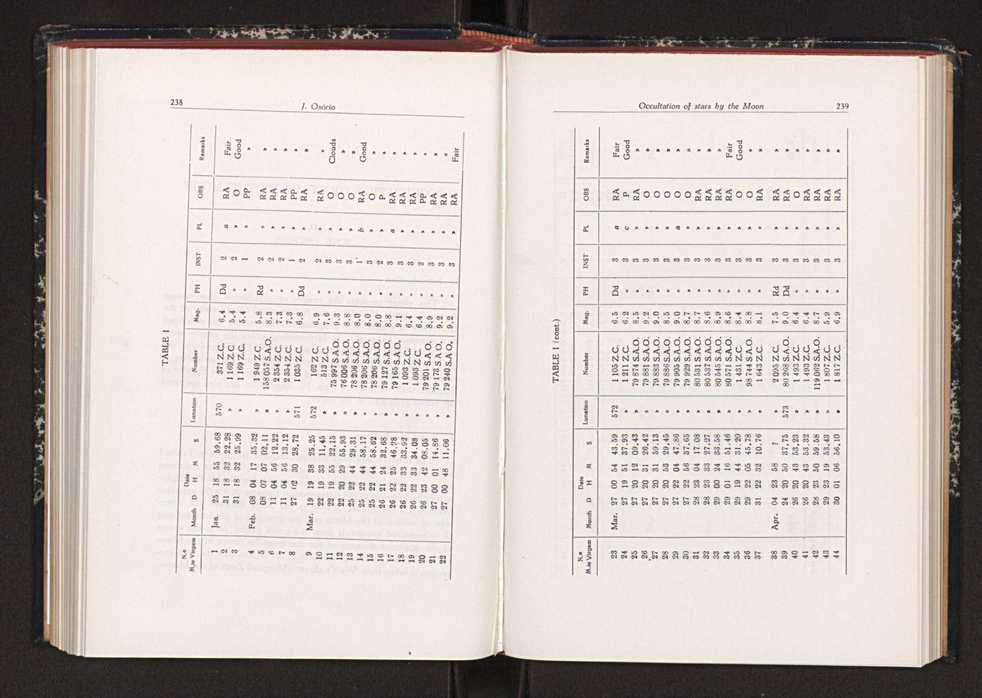 238
J. Osório
TABLE I
N.º M.te Virgem | Month | Date D H M S | Lunation | Number | Mag. | PH | INST | PL | OBS | Remarks
1 Jan. 25 18 55 59.68 570 371 Z.C. 6.4 Dd 2 a RA Fair
2 31 18 32 22.28 » 1 169 Z.C. 5.4 » 2 » O Good
3 31 18 32 25.99 » 1 169 Z.C. 5.4 » 1 » PP »
4 Feb. 08 04 17 35.32 » 1 949 Z.C. 5.8 Rd 2 » RA »
5 08 07 07 02.11 » 158 057 S.A.O. 8.3 » 2 » RA »
6 11 04 56 12.22 » 2 354 Z.C. 7.3 » 2 » RA »
7 11 04 56 13.12 » 2 354 Z.C. 7.3 » 1 » PP »
8 27 02 30 28.72 571 1 035 Z.C. 6.8 Dd 2 » RA »
9 Mar. 19 19 38 25.25 572 162 Z.C. 6.9 » 2 » RA »
10 22 19 33 11.45 » 513 Z.C. 7.6 » 3 » O Clouds
11 22 19 55 22.15 » 75 997 S.A.O. 9.3 » 3 » O »
12 22 20 29 55.93 » 76 006 S.A.O. 8.8 » 3 » O »
13 25 22 44 29.31 » 78 206 S.A.O. 8.0 » 1 b RA Good
14 25 22 44 58.17 » 78 206 S.A.O. 8.0 » 3 » O »
15 25 22 44 58.62 » 78 206 S.A.O. 8.0 » 2 » P »
16 26 21 24 32.68 » 79 127 S.A.O. 8.8 » 3 a RA »
17 26 22 25 46.78 » 79 165 S.A.O. 9.1 » 3 » RA »
18 26 22 33 33.92 » 1 093 Z.C. 6.4 » 3 » RA »
19 26 22 33 34.08 » 1 093 Z.C. 6.4 » 2 » PP »
20 26 23 42 08.05 » 79 201 S.A.O. 8.9 » 3 » RA »
21 27 00 01 14.86 » 79 173 S.A.O. 9.2 » 3 » RA »
22 27 00 48 11.06 » 79 240 S.A.O. 9.2 » 3 » RA Fair
Occultation of stars by the Moon
239
TABLE I (cont.)
N.º M.te Virgem | Month | Date D H M S | Lunation | Number | Mag. | PH | INST | PL | OBS | Remarks
23 Mar. 27 00 54 43.59 572 1 105 Z.C. 6.5 Dd 3 a RA Fair
24 27 19 51 37.93 » 1 211 Z.C. 6.2 » 3 c P Good
25 27 20 12 09.43 » 79 874 S.A.O. 8.5 » 3 » RA »
26 27 20 31 26.42 » 79 881 S.A.O. 9.2 » 3 » O »
27 27 20 31 59.13 » 79 883 S.A.O. 9.0 » 3 » O »
28 27 20 53 29.45 » 79 886 S.A.O. 8.5 » 3 » O »
29 27 22 04 47.86 » 79 905 S.A.O. 9.0 » 3 a O »
30 27 22 56 37.65 » 79 929 S.A.O. 8.7 » 3 » O »
31 28 23 04 17.08 » 80 531 S.A.O. 8.7 » 3 » RA »
32 28 23 33 27.27 » 80 537 S.A.O. 8.6 » 3 » RA »
33 29 00 24 33.58 » 80 545 S.A.O. 8.9 » 3 » RA »
34 29 01 16 51.46 » 80 571 S.A.O. 8.6 » 3 » RA Fair
35 29 19 44 31.20 » 1 431 Z.C. 8.4 » 3 » O Good
36 29 22 05 45.78 » 98 744 S.A.O. 8.8 » 3 » O »
37 31 22 32 10.76 » 1 643 Z.C. 8.1 » 3 » RA »
38 Apr. 04 23 58 ? » 2 095 Z.C. 7.5 Rd 3 » RA »
39 24 20 50 37.75 573 80 268 S.A.O. 9.0 Dd 3 » RA »
40 26 20 43 53.23 » 1 493 Z.C. 6.4 » 3 » O »
41 26 20 43 53.32 » 1 493 Z.C. 6.4 » 3 » RA »
42 28 23 50 59.58 » 119 062 S.A.O. 8.7 » 3 » RA »
43 29 23 19 53.43 » 1 807 Z.C. 5.9 » 3 » RA »
44 30 01 06 56.10 » 1 817 Z.C. 6.9 » 3 » RA »